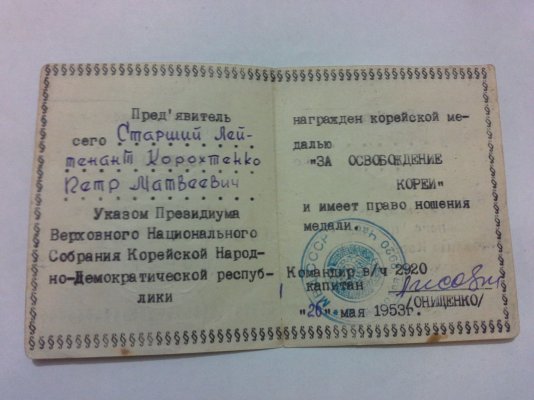 Пред'явитель
сего Старший Лей-
тенант Корохтенко
Петр Матвеевич
Указом Президиума
Верховного Национального
Собрания Корейской Народ-
но-Демократической респуб-
лики
награжден корейской ме-
далью
"ЗА ОСВОБОЖДЕНИЕ
КОРЕИ"
и имеет право ношения
медали.
Командир в/ч 2920
капитан
/ОНИЩЕНКО/
"26" мая 1953г.